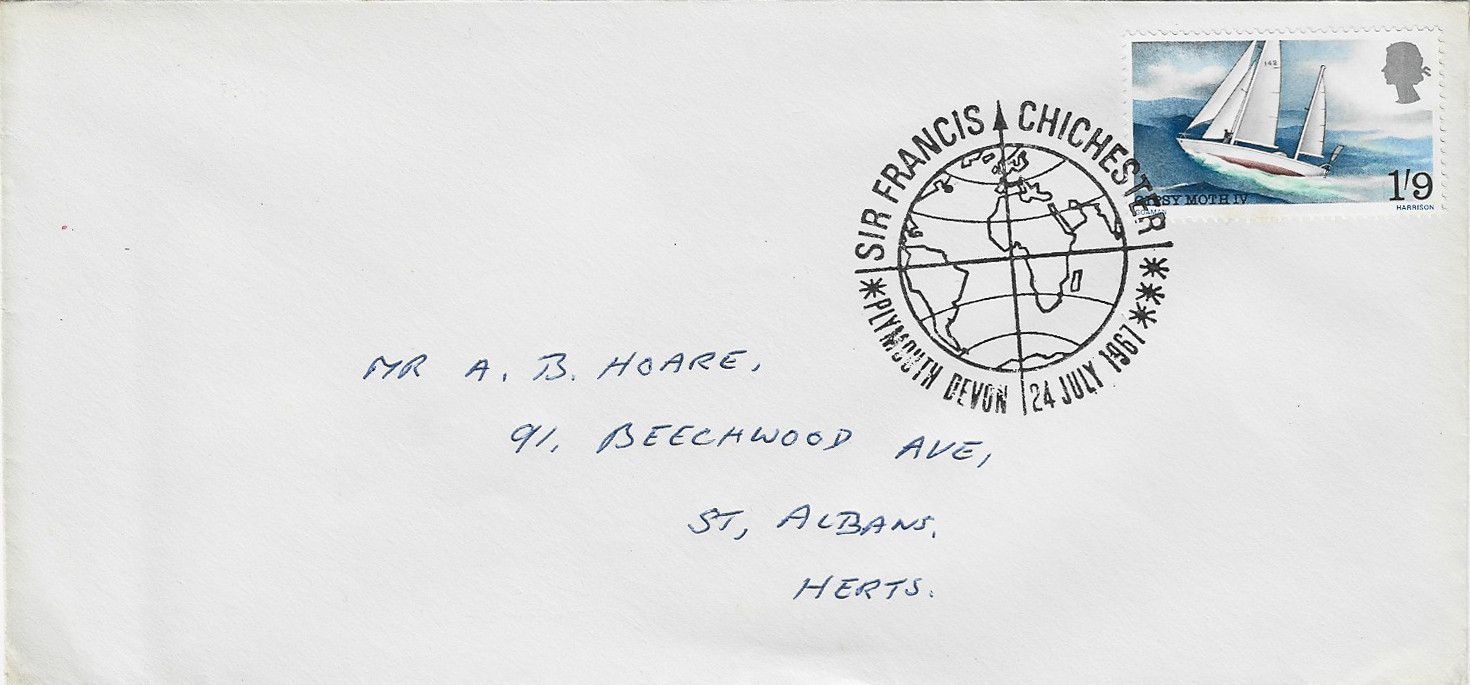 142
1'9
GIPSY MOTH IV
HARRISON
SIR FRANCIS CHICHESTER
PLYMOUTH DEVON 24 JULY 1967
MR A. B. HOARE,
91, BEECHWOOD AVE,
ST, ALBANS.
HERTS.